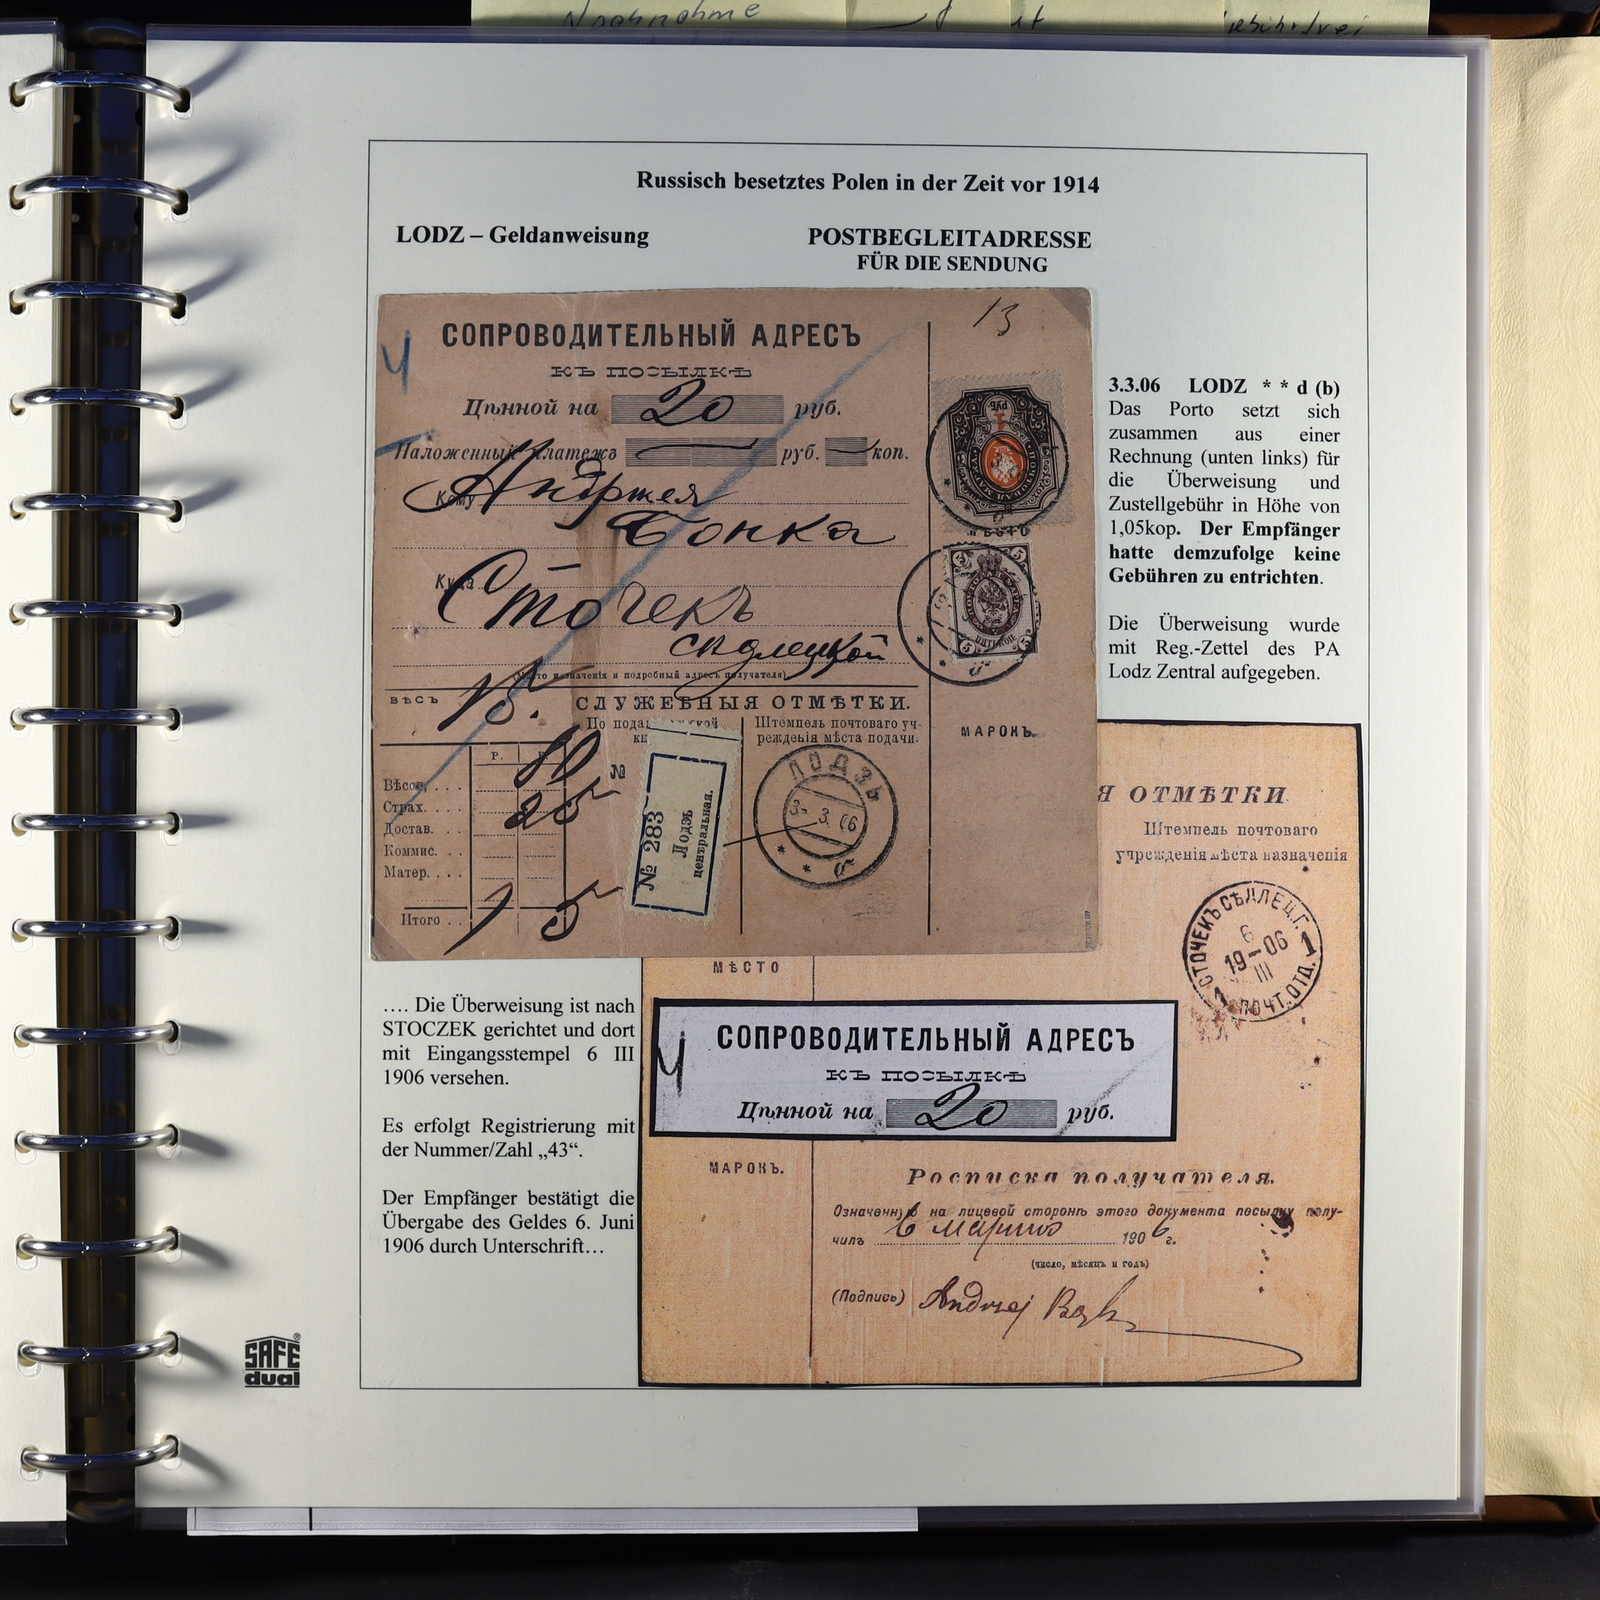 Nachnahme
Russisch besetztes Polen in der Zeit vor 1914
LODZ – Geldanweisung
POSTBEGLEITADRESSE
FÜR DIE SENDUNG
13
СОПРОВОДИТЕЛЬНЫЙ АДРЕСЪ
КЪ ПОСЫЛКѢ
Цѣнной на 20 руб.
Наложенный платежъ руб. коп.
Кому Андржея
Бонка
Куда Сточекъ
(Мѣсто назначенія и подробный адресъ получателя)
ВѢСЪ
СЛУЖЕБНЫЯ ОТМѢТКИ.
Штемпель почтоваго уч-
режденія мѣста подачи.
Р.
№
Вѣсов. . . . 80
Страх. . . . 25
Достав. . . .
Коммис. . . .
Матер. . . .
Итого . . 1 5
№ 283
Лодзь
центральная.
ЛОДЗЬ
3. 3. 06
* * б
МѢСТО
5 5
ПЯТЬ КОП
МАРОКЪ.
3.3.06 LODZ * * d (b)
Das Porto setzt sich
zusammen aus einer
Rechnung (unten links) für
die Überweisung und
Zustellgebühr in Höhe von
1,05kop. Der Empfänger
hatte demzufolge keine
Gebühren zu entrichten.
Die Überweisung wurde
mit Reg.-Zettel des PA
Lodz Zentral aufgegeben.
Я ОТМѢТКИ
Штемпель почтоваго
учрежденія мѣста назначенія
СТОЧЕКЪ СѢДЛЕЦ. Г.
6
19–06
III
1 ПОЧТ. ОТД. 1
МѢСТО
СОПРОВОДИТЕЛЬНЫЙ АДРЕСЪ
КЪ ПОСЫЛКѢ
Цѣнной на 20 руб.
МАРОКЪ.
Росписка получателя.
Означенную на лицевой сторонѣ этого документа посылку полу-
чилъ 6 марта 1906 г.
(число, мѣсяцъ и годъ)
(Подпись) Andrzej
.... Die Überweisung ist nach
STOCZEK gerichtet und dort
mit Eingangsstempel 6 III
1906 versehen.
Es erfolgt Registrierung mit
der Nummer/Zahl „43“.
Der Empfänger bestätigt die
Übergabe des Geldes 6. Juni
1906 durch Unterschrift…
SAFE®
dual